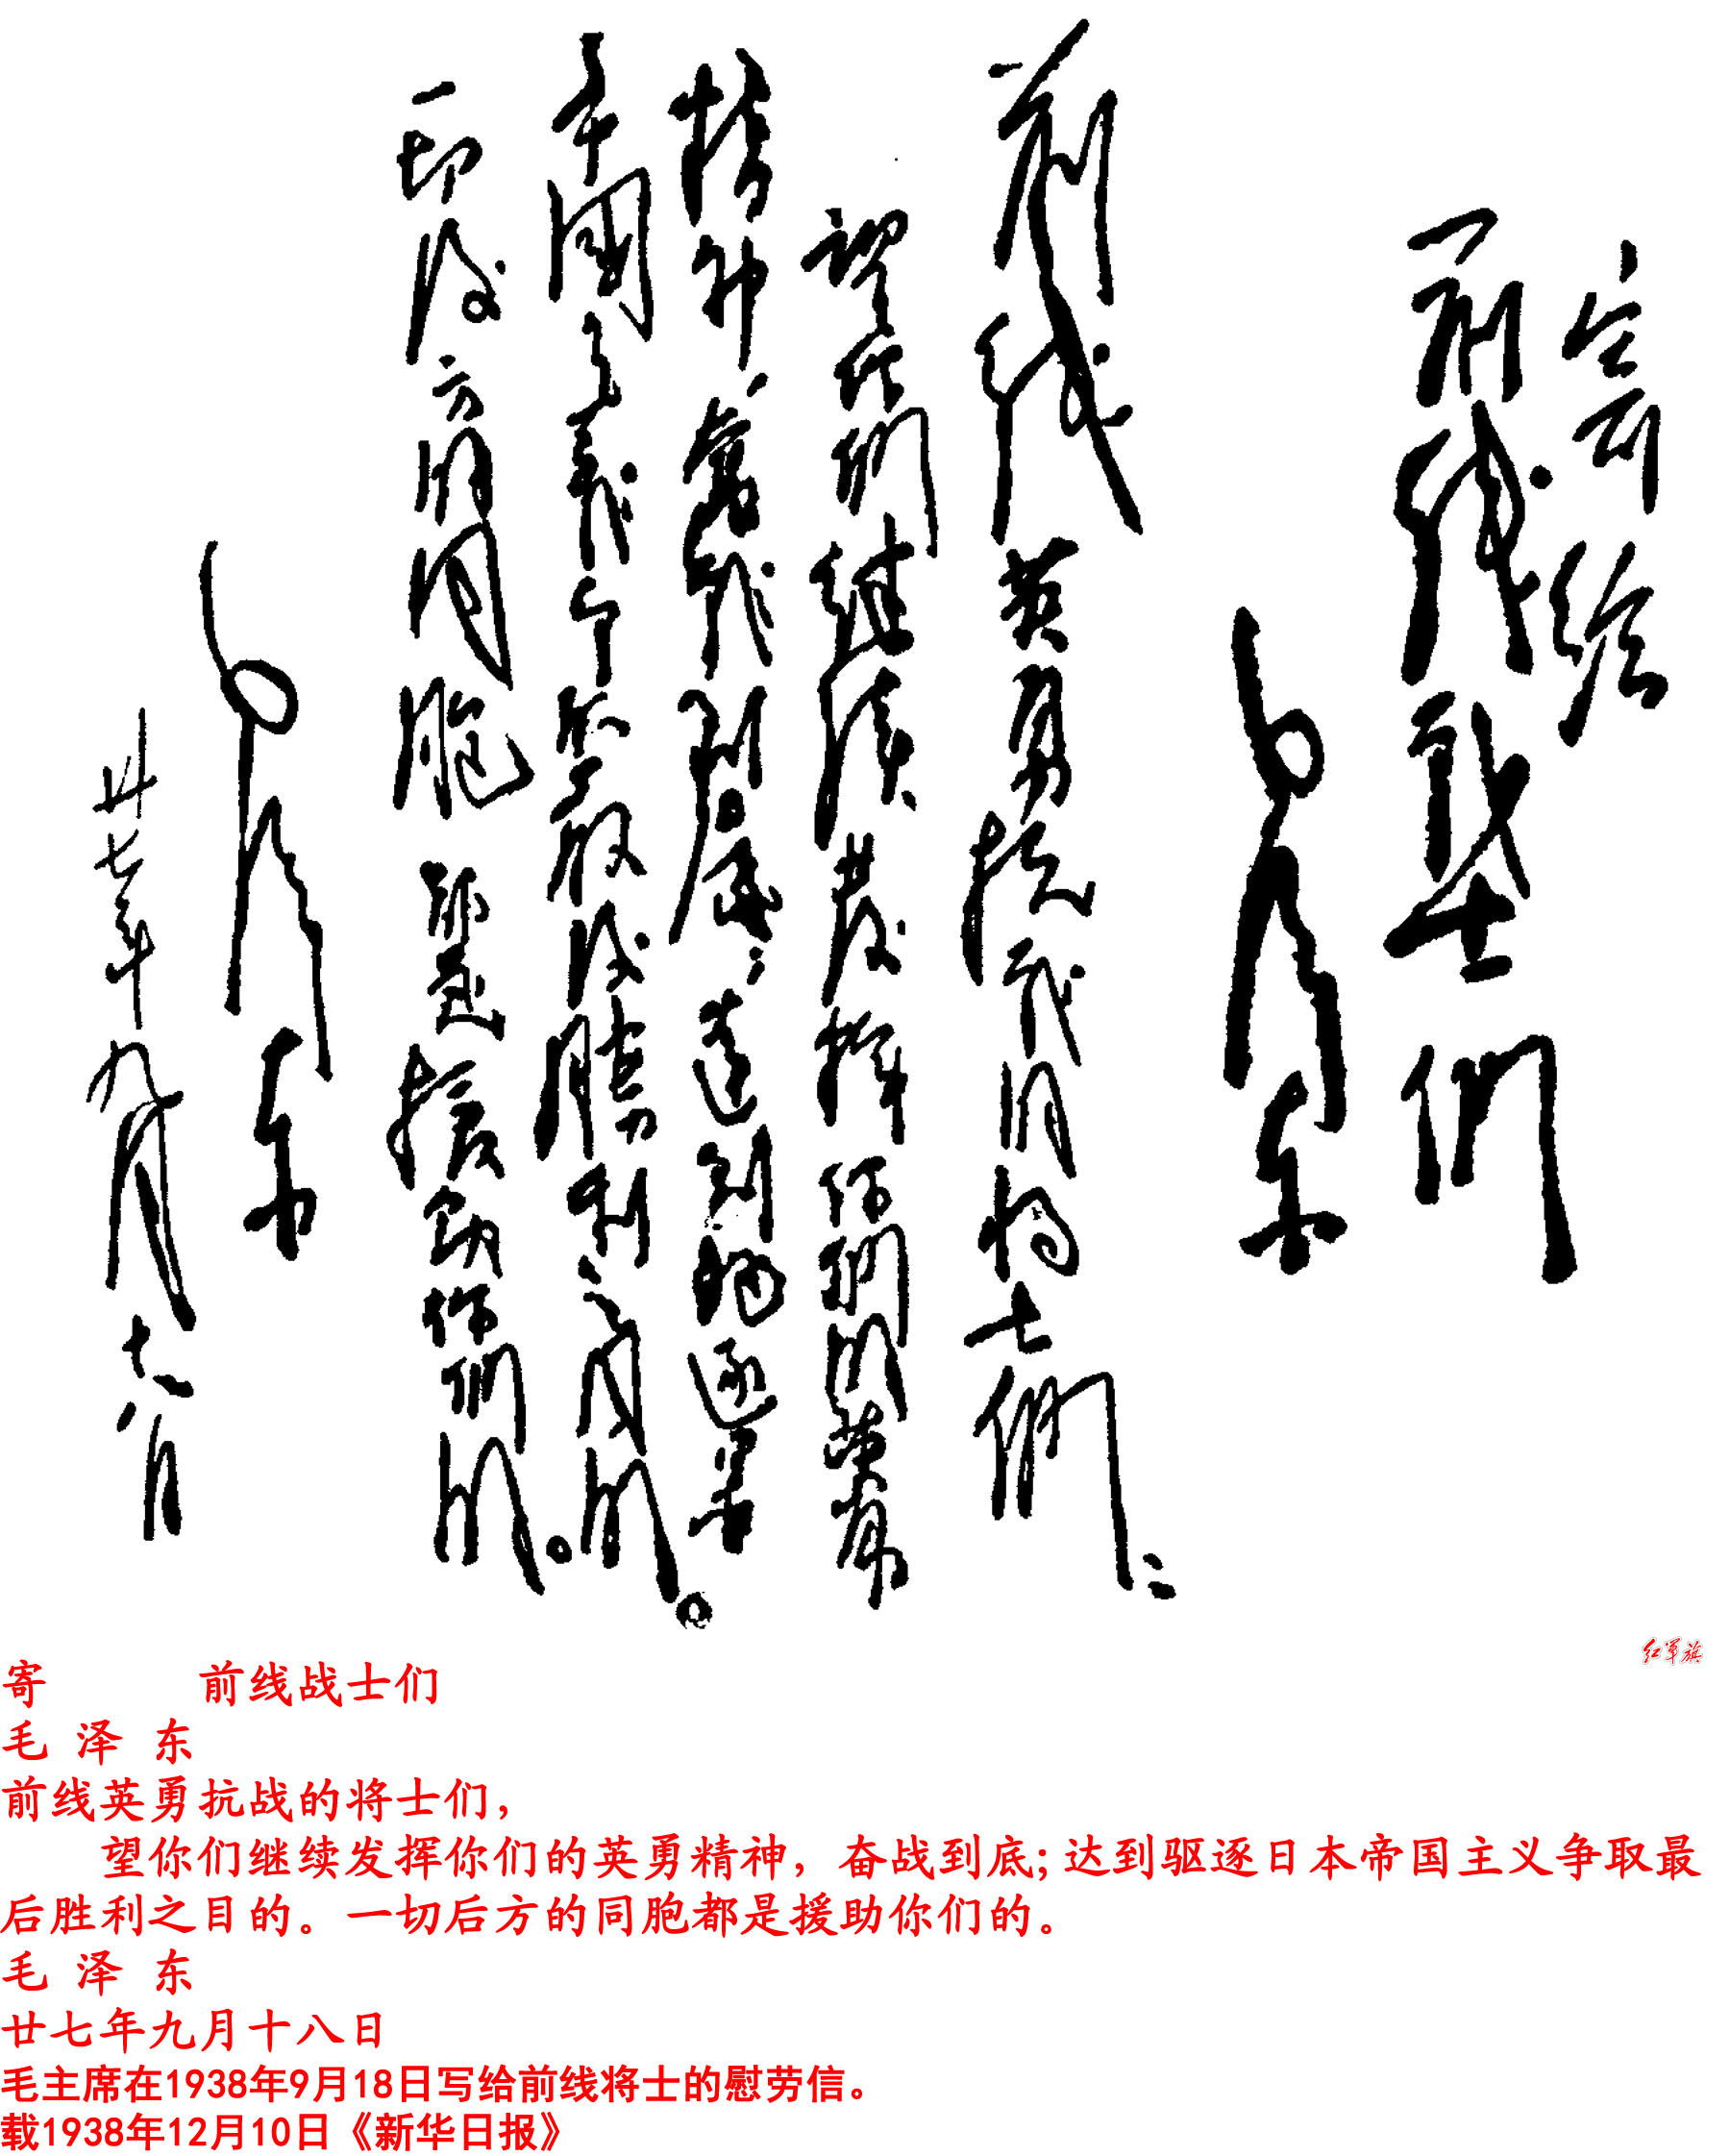 寄给
前线戰士們
毛泽东
前线英勇抗战的将士們:
望你們继續發揮你們的英勇
精神,奮战到底;達到驱逐日本
帝國主義争取最後勝利之目的。
一切後方的同胞都是援助你們的。
毛泽东
廿七年九月十八日
红军旗
寄 前线战士们
毛 泽 东
前线英勇抗战的将士们,
望你们继续发挥你们的英勇精神,奋战到底;达到驱逐日本帝国主义争取最
后胜利之目的。一切后方的同胞都是援助你们的。
毛 泽 东
廿七年九月十八日
毛主席在1938年9月18日写给前线将士的慰劳信。
载1938年12月10日《新华日报》